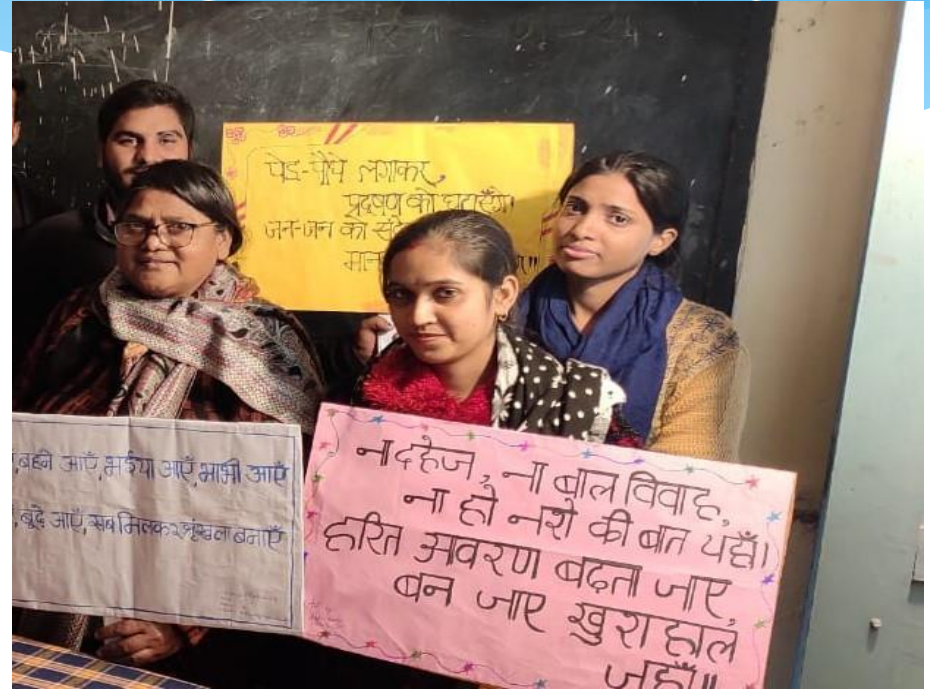 पेड़-पौधे लगाकर,
प्रदूषण को घटाएँगे।
जन-जन का
बहनें आएँ, भईया आएँ, भाभी आएँ
बूढ़े आएँ, सब मिलकर श्रृंखला बनाएँ
ना दहेज, ना बाल विवाह,
ना हो नशे की बात यहाँ।
हरित आवरण बढ़ता जाए,
बन जाए खुशहाल
जहाँ॥